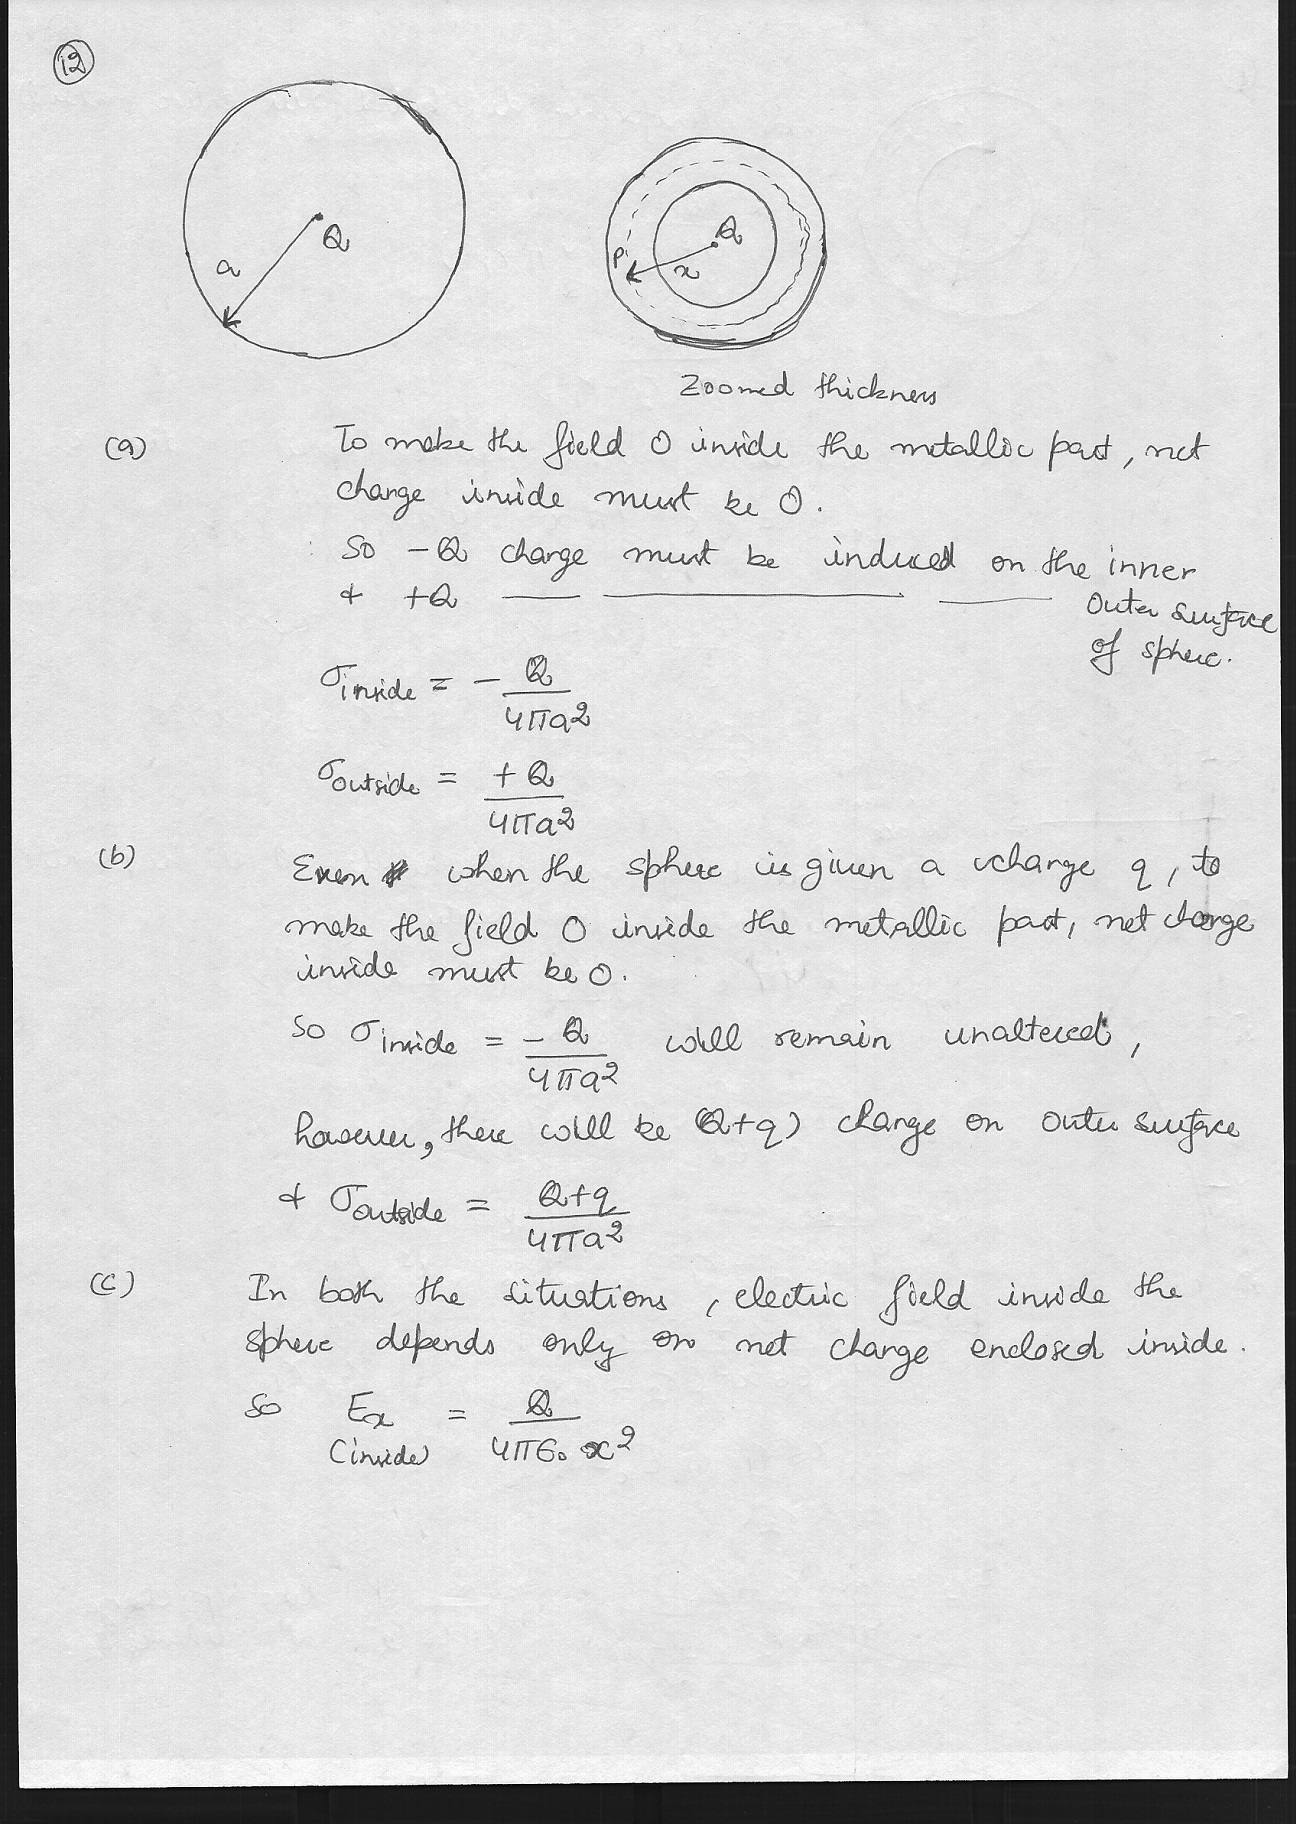 12
Q
a
Q
P
x
Zoomed thickness
(a) To make the field 0 inside the metallic part, net
charge inside must be 0.
So -Q charge must be induced on the inner
& +Q —— ———— —— outer surface
of sphere.
σinside = - Q / 4πa²
σoutside = +Q / 4πa²
(b) Even when the sphere is given a charge q, to
make the field 0 inside the metallic part, net charge
inside must be 0.
So σinside = -Q / 4πa² will remain unaltered,
however, there will be (Q+q) charge on outer surface
& σoutside = Q+q / 4πa²
(c) In both the situations, electric field inside the
sphere depends only on net charge enclosed inside.
So Ex = Q / 4πε₀ x²
(inside)